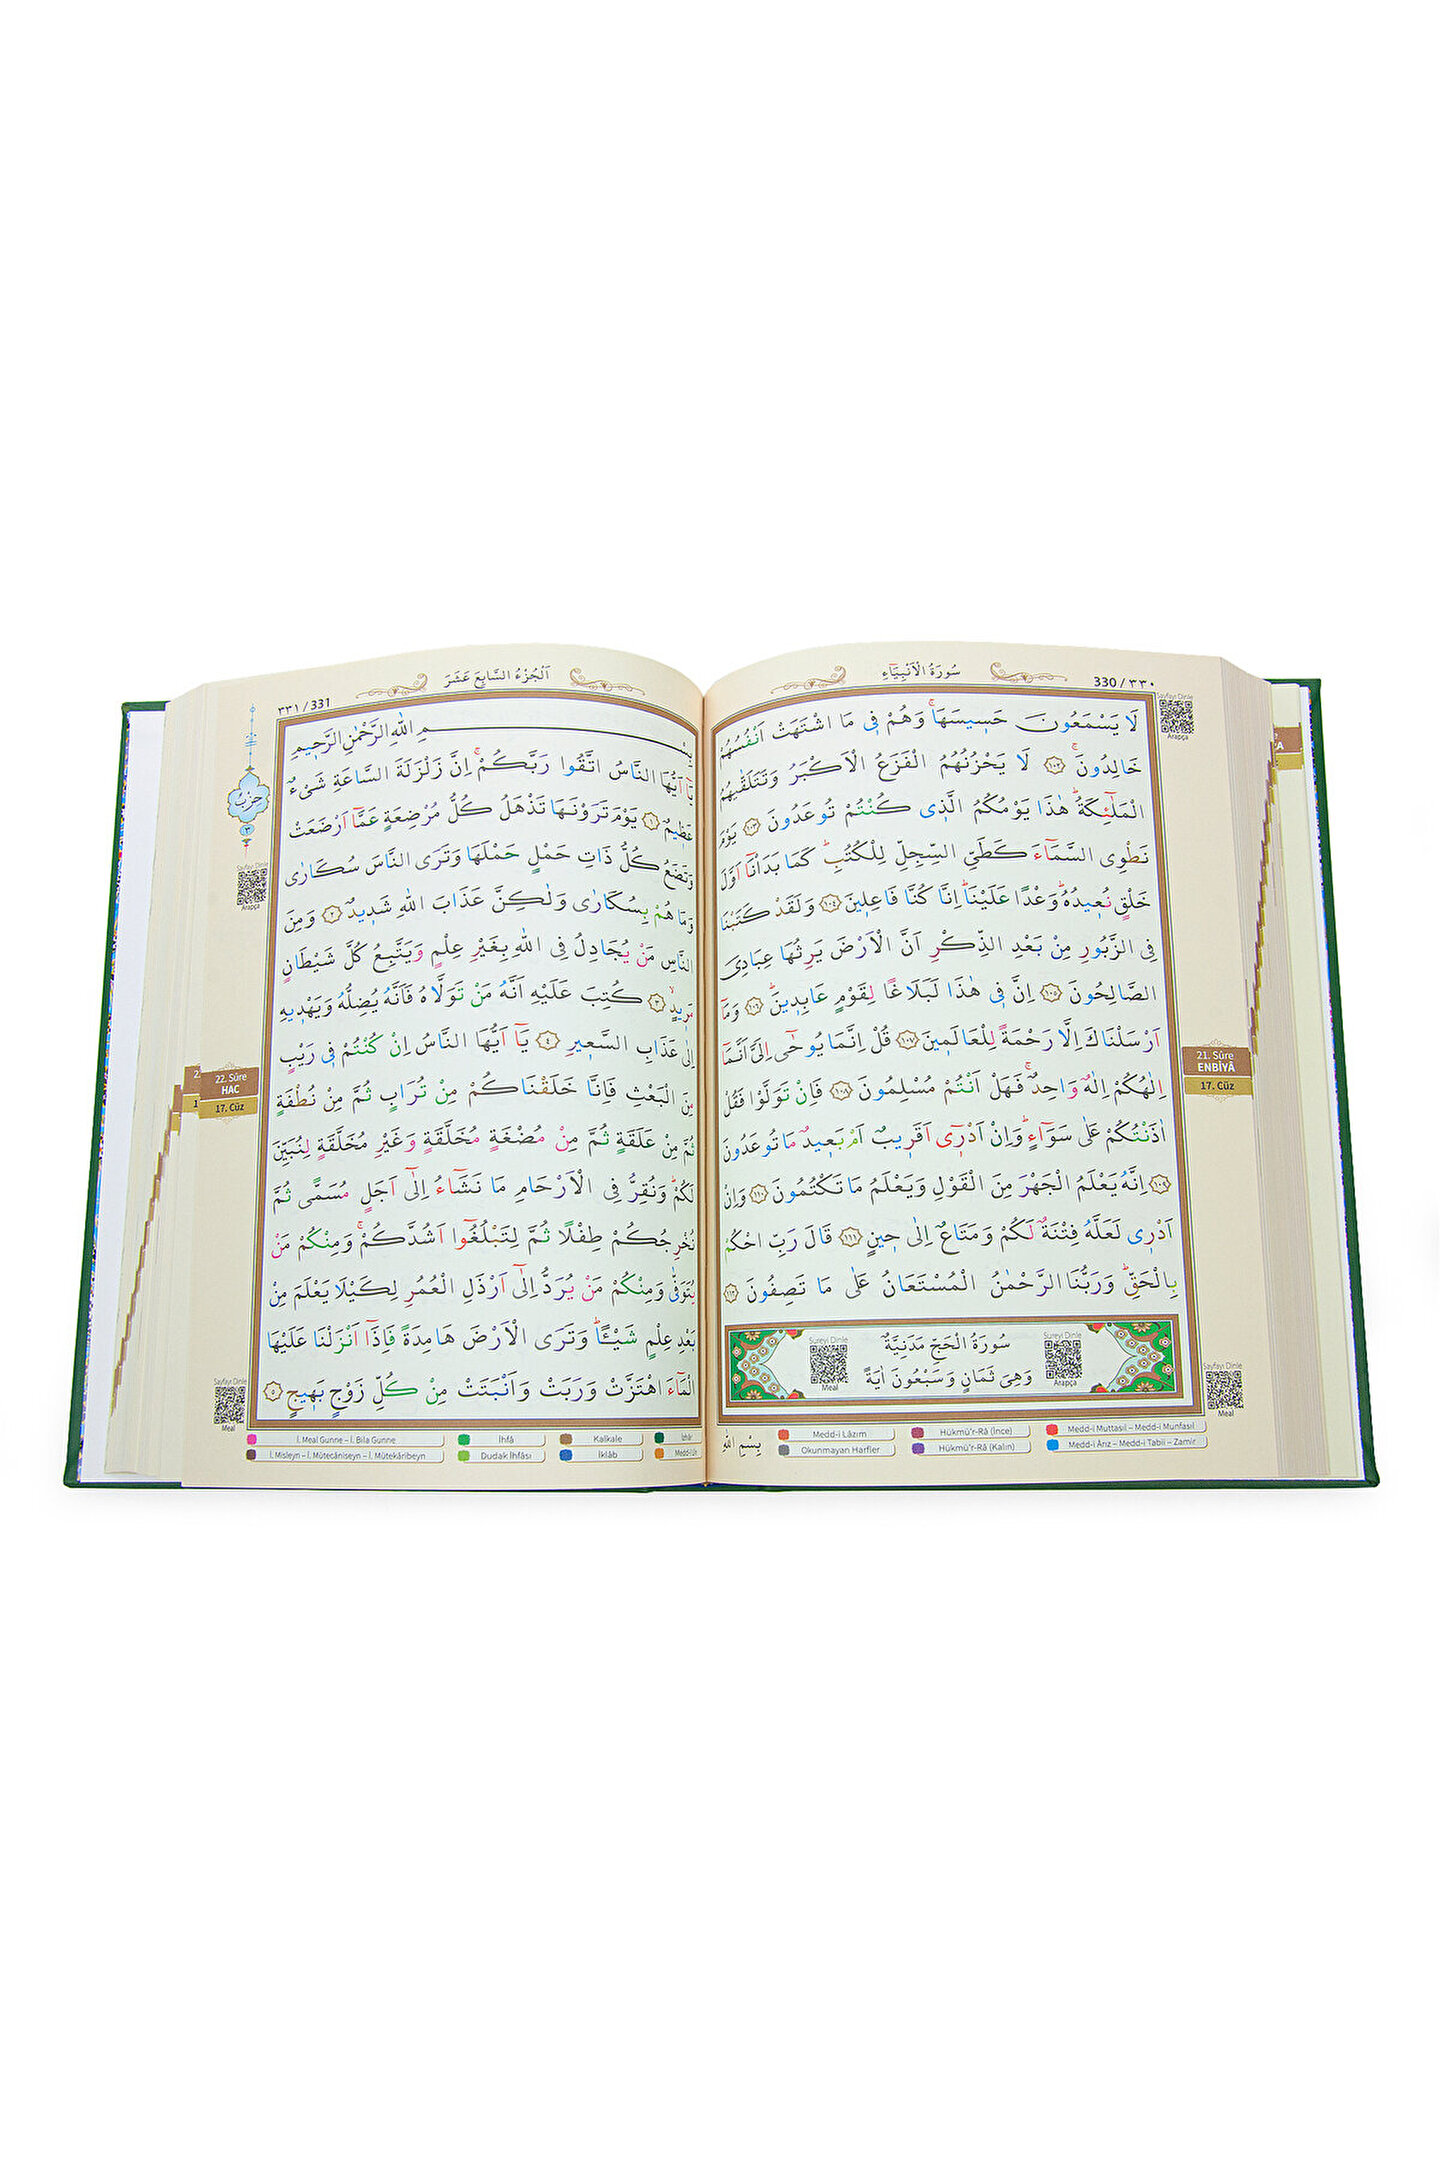 سُورَةُ الْاَنْبِيَاءِ
330 / ٣٣٠
Sayfayı Dinle
Arapça
لَا يَسْمَعُونَ حَسِيسَهَاۚ وَهُمْ فٖي مَا اشْتَهَتْ اَنْفُسُهُمْ
خَالِدُونَۚ ﴿١٠٢﴾ لَا يَحْزُنُهُمُ الْفَزَعُ الْاَكْبَرُ وَتَتَلَقّٰيهُمُ
الْمَلٰٓئِكَةُۜ هٰذَا يَوْمُكُمُ الَّذٖي كُنْتُمْ تُوعَدُونَ ﴿١٠٣﴾ يَوْمَ
نَطْوِي السَّمَٓاءَ كَطَيِّ السِّجِلِّ لِلْكُتُبِۜ كَمَا بَدَأْنَٓا اَوَّلَ
خَلْقٍ نُعٖيدُهُۜ وَعْدًا عَلَيْنَاۜ اِنَّا كُنَّا فَاعِلٖينَ ﴿١٠٤﴾ وَلَقَدْ كَتَبْنَا
فِي الزَّبُورِ مِنْ بَعْدِ الذِّكْرِ اَنَّ الْاَرْضَ يَرِثُهَا عِبَادِيَ
الصَّالِحُونَ ﴿١٠٥﴾ اِنَّ فٖي هٰذَا لَبَلَاغًا لِقَوْمٍ عَابِدٖينَۜ ﴿١٠٦﴾ وَمَٓا
اَرْسَلْنَاكَ اِلَّا رَحْمَةً لِلْعَالَمٖينَ ﴿١٠٧﴾ قُلْ اِنَّمَا يُوحٰٓى اِلَيَّ اَنَّمَٓا
اِلٰهُكُمْ اِلٰهٌ وَاحِدٌۚ فَهَلْ اَنْتُمْ مُسْلِمُونَ ﴿١٠٨﴾ فَاِنْ تَوَلَّوْا فَقُلْ
اٰذَنْتُكُمْ عَلٰى سَوَٓاءٍۜ وَاِنْ اَدْرٖٓي اَقَرٖيبٌ اَمْ بَعٖيدٌ مَا تُوعَدُونَ
﴿١٠٩﴾ اِنَّهُ يَعْلَمُ الْجَهْرَ مِنَ الْقَوْلِ وَيَعْلَمُ مَا تَكْتُمُونَ ﴿١١٠﴾ وَاِنْ
اَدْرٖي لَعَلَّهُ فِتْنَةٌ لَكُمْ وَمَتَاعٌ اِلٰى حٖينٍ ﴿١١١﴾ قَالَ رَبِّ احْكُمْ
بِالْحَقِّۜ وَرَبُّنَا الرَّحْمٰنُ الْمُسْتَعَانُ عَلٰى مَا تَصِفُونَ ﴿١١٢﴾
Sureyi Dinle
Meal
سُورَةُ الْحَجِّ مَدَنِيَّةٌ
وَهِيَ ثَمَانٍ وَسَبْعُونَ اٰيَةً
Sureyi Dinle
Arapça
21. Sûre
ENBİYÂ
17. Cüz
Sayfayı Dinle
Meal
بِسْمِ اللّٰهِ
Medd-i Lâzım
Hükmü'r-Râ (İnce)
Medd-i Muttasıl – Medd-i Munfasıl
Okunmayan Harfler
Hükmü'r-Râ (Kalın)
Medd-i Ârız – Medd-i Tabii – Zamir
اَلْجُزْءُ السَّابِعَ عَشَرَ
٣٣١ / 331
حِزْبٌ
٣
Sayfayı Dinle
Arapça
بِسْمِ اللّٰهِ الرَّحْمٰنِ الرَّحٖيمِ
يَٓا اَيُّهَا النَّاسُ اتَّقُوا رَبَّكُمْۚ اِنَّ زَلْزَلَةَ السَّاعَةِ شَيْءٌ
عَظٖيمٌ ﴿١﴾ يَوْمَ تَرَوْنَهَا تَذْهَلُ كُلُّ مُرْضِعَةٍ عَمَّٓا اَرْضَعَتْ
وَتَضَعُ كُلُّ ذَاتِ حَمْلٍ حَمْلَهَا وَتَرَى النَّاسَ سُكَارٰى
وَمَا هُمْ بِسُكَارٰى وَلٰكِنَّ عَذَابَ اللّٰهِ شَدٖيدٌ ﴿٢﴾ وَمِنَ
النَّاسِ مَنْ يُجَادِلُ فِي اللّٰهِ بِغَيْرِ عِلْمٍ وَيَتَّبِعُ كُلَّ شَيْطَانٍ
مَرٖيدٍۙ ﴿٣﴾ كُتِبَ عَلَيْهِ اَنَّهُ مَنْ تَوَلَّاهُ فَاَنَّهُ يُضِلُّهُ وَيَهْدٖيهِ
اِلٰى عَذَابِ السَّعٖيرِ ﴿٤﴾ يَٓا اَيُّهَا النَّاسُ اِنْ كُنْتُمْ فٖي رَيْبٍ
مِنَ الْبَعْثِ فَاِنَّا خَلَقْنَاكُمْ مِنْ تُرَابٍ ثُمَّ مِنْ نُطْفَةٍ
ثُمَّ مِنْ عَلَقَةٍ ثُمَّ مِنْ مُضْغَةٍ مُخَلَّقَةٍ وَغَيْرِ مُخَلَّقَةٍ لِنُبَيِّنَ
لَكُمْۜ وَنُقِرُّ فِي الْاَرْحَامِ مَا نَشَٓاءُ اِلٰٓى اَجَلٍ مُسَمًّى ثُمَّ
نُخْرِجُكُمْ طِفْلًا ثُمَّ لِتَبْلُغُٓوا اَشُدَّكُمْۚ وَمِنْكُمْ مَنْ
يُتَوَفّٰى وَمِنْكُمْ مَنْ يُرَدُّ اِلٰٓى اَرْذَلِ الْعُمُرِ لِكَيْلَا يَعْلَمَ مِنْ
بَعْدِ عِلْمٍ شَيْـًٔاۜ وَتَرَى الْاَرْضَ هَامِدَةً فَاِذَٓا اَنْزَلْنَا عَلَيْهَا
الْمَٓاءَ اهْتَزَّتْ وَرَبَتْ وَاَنْبَتَتْ مِنْ كُلِّ زَوْجٍ بَهٖيجٍ ﴿٥﴾
22. Sûre
HAC
17. Cüz
Sayfayı Dinle
Meal
İ. Meal Gunne – İ. Bila Gunne
İhfâ
Kalkale
İzhâr
İ. Misleyn – İ. Mütecâniseyn – İ. Mütekâribeyn
Dudak İhfâsı
İklâb
Medd-i Lîn